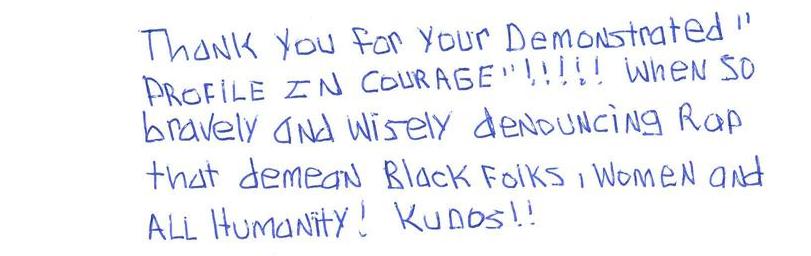 Thank you for your Demonstrated "
PROFILE IN COURAGE"!!!!! when so
bravely and wisely denouncing Rap
that demean Black Folks, women and
ALL Humanity! Kudos!!